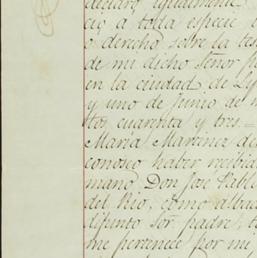 declaro igualmente
cio a toda especie
o derecho sobre la tes
de mi dicho Señor pa
en la ciudad de Ly
y uno de Junio de m
tos cuarenta y tres =
Maria Martinez del
conosco haber recibid
mano Don Jose Pablo
del Rio, como albac
difunto Sor. padre, t
me pertenece por mi